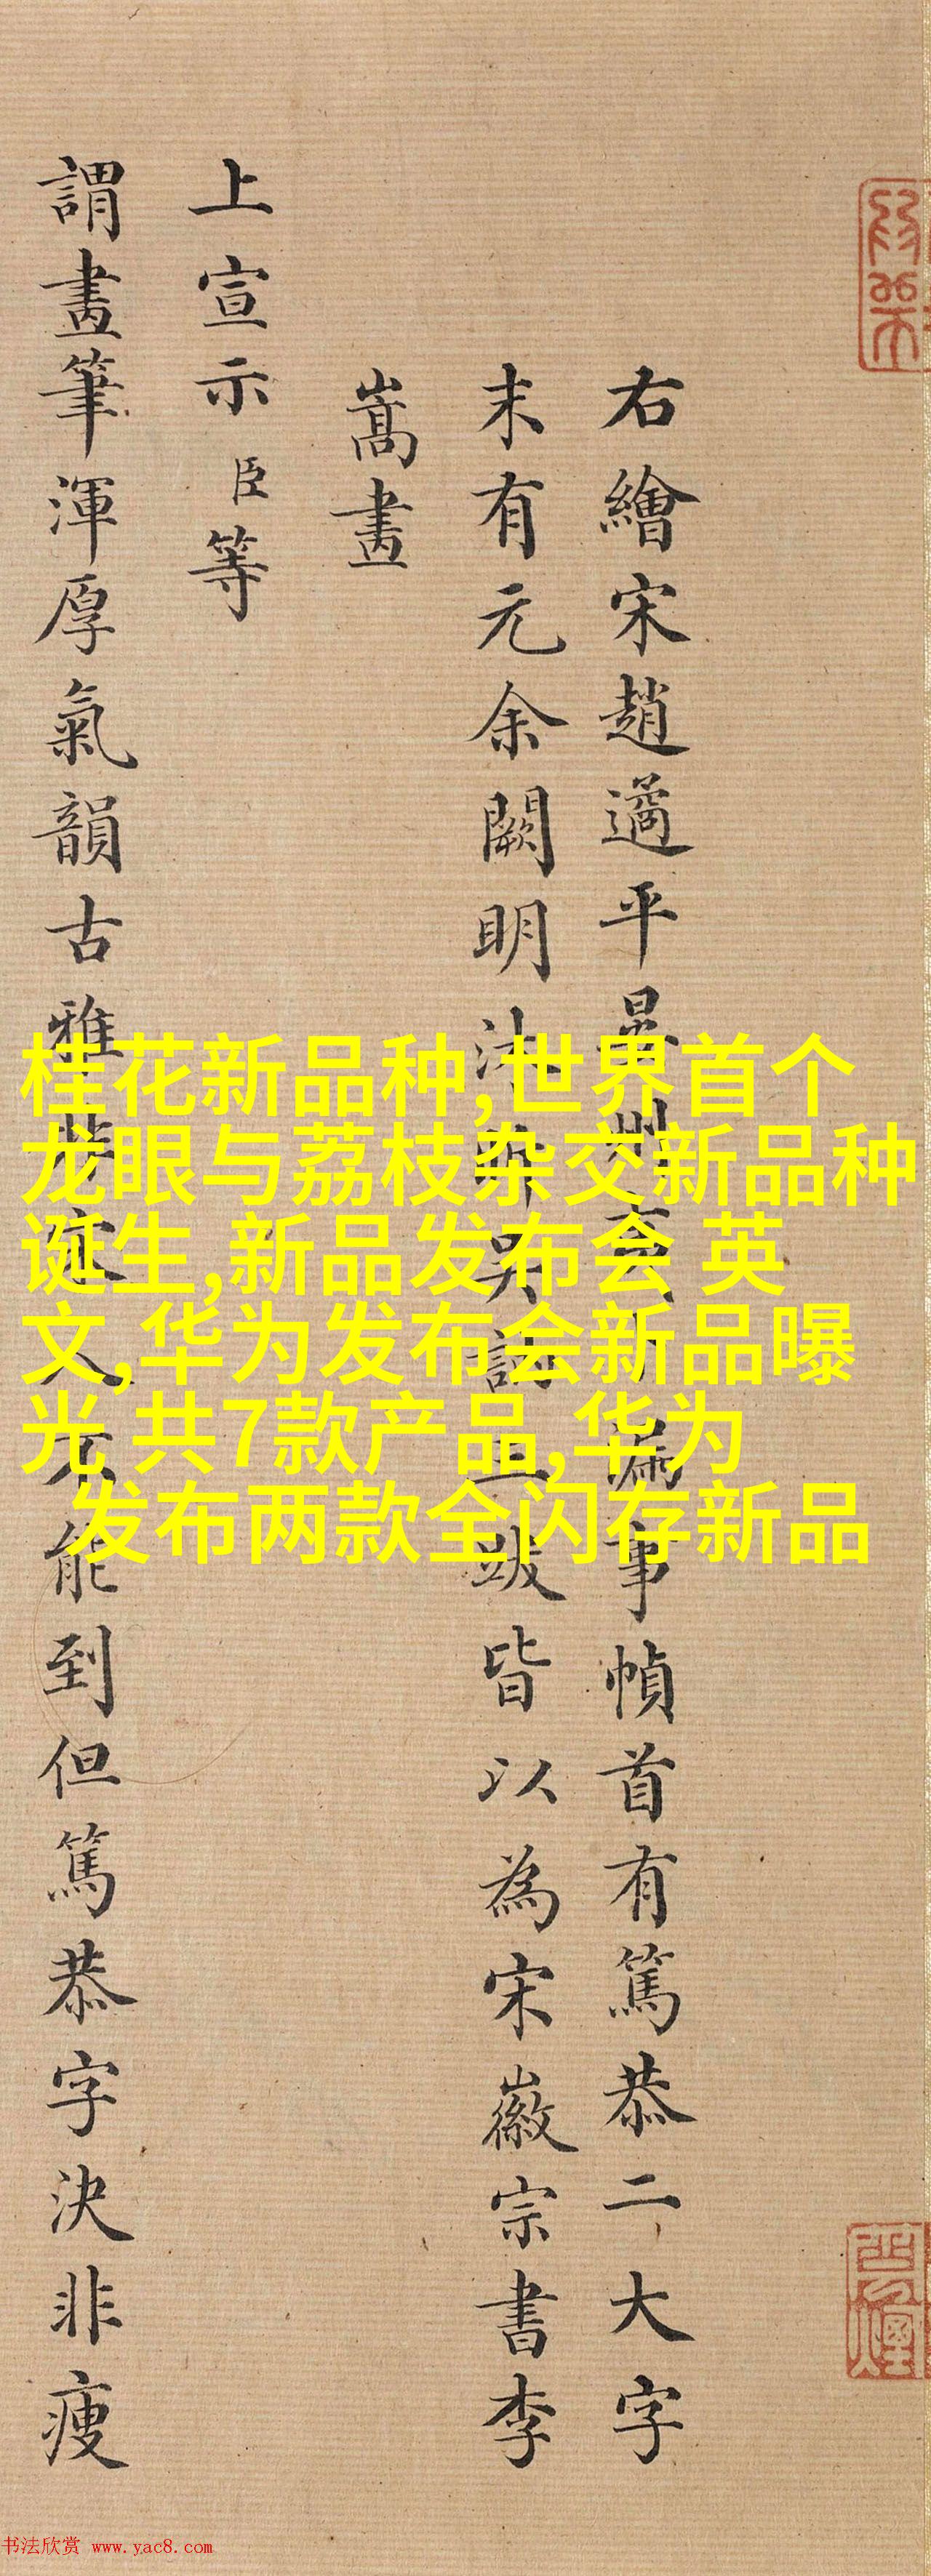 右繪宋趙遹平晏州夷卜漏事幀首有篤恭二大字
末有元余闕明沐璘吳訥三跋皆以為宋徽宗書李
嵩畫
上宣示臣等
謂畫筆渾厚氣韻古雅非宋人不能到但篤恭字決非瘦
桂花新品种,世界首个
龙眼与荔枝杂交新品种
诞生,新品发布会 英
文,华为发布会新品曝
光 共7款产品,华为
发布两款全闪存新品
书法欣赏 www.yac8.com